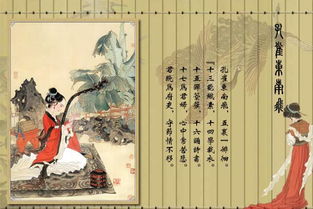 孔雀東南飛
孔雀東南飛，五裏一徘徊。
「十三能織素，十四學裁衣，
十五彈箜篌，十六誦詩書。
十七為君婦，心中常苦悲。
君既為府吏，守節情不移。